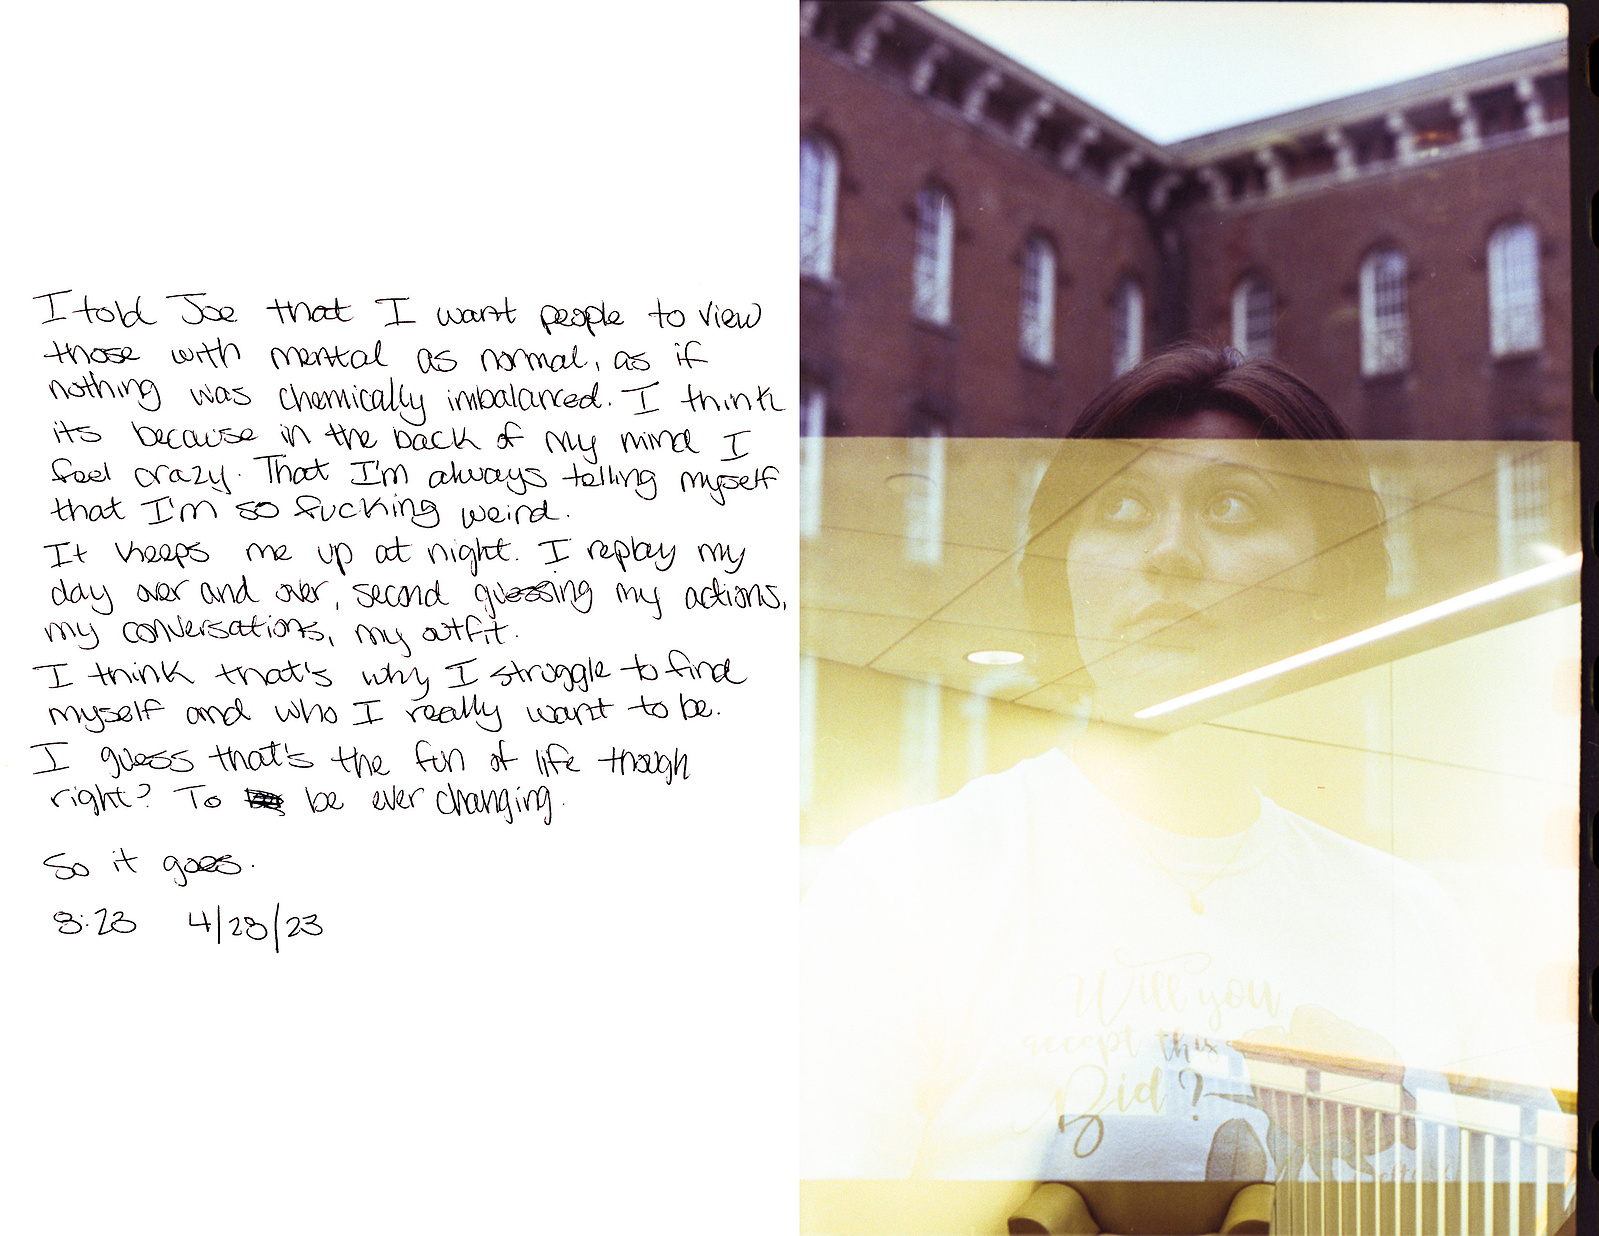 I told Joe that I want people to view
those with mental as normal, as if
nothing was chemically imbalanced. I think
its because in the back of my mind I
feel crazy. That I'm always telling myself
that I'm so fucking weird.
It keeps me up at night. I replay my
day over and over, second guessing my actions,
my conversations, my outfit.
I think that's why I struggle to find
myself and who I really want to be.
I guess that's the fun of life though
right? To be ever changing.
So it goes.
8:23 4/28/23
Will you
accept this
Bid?